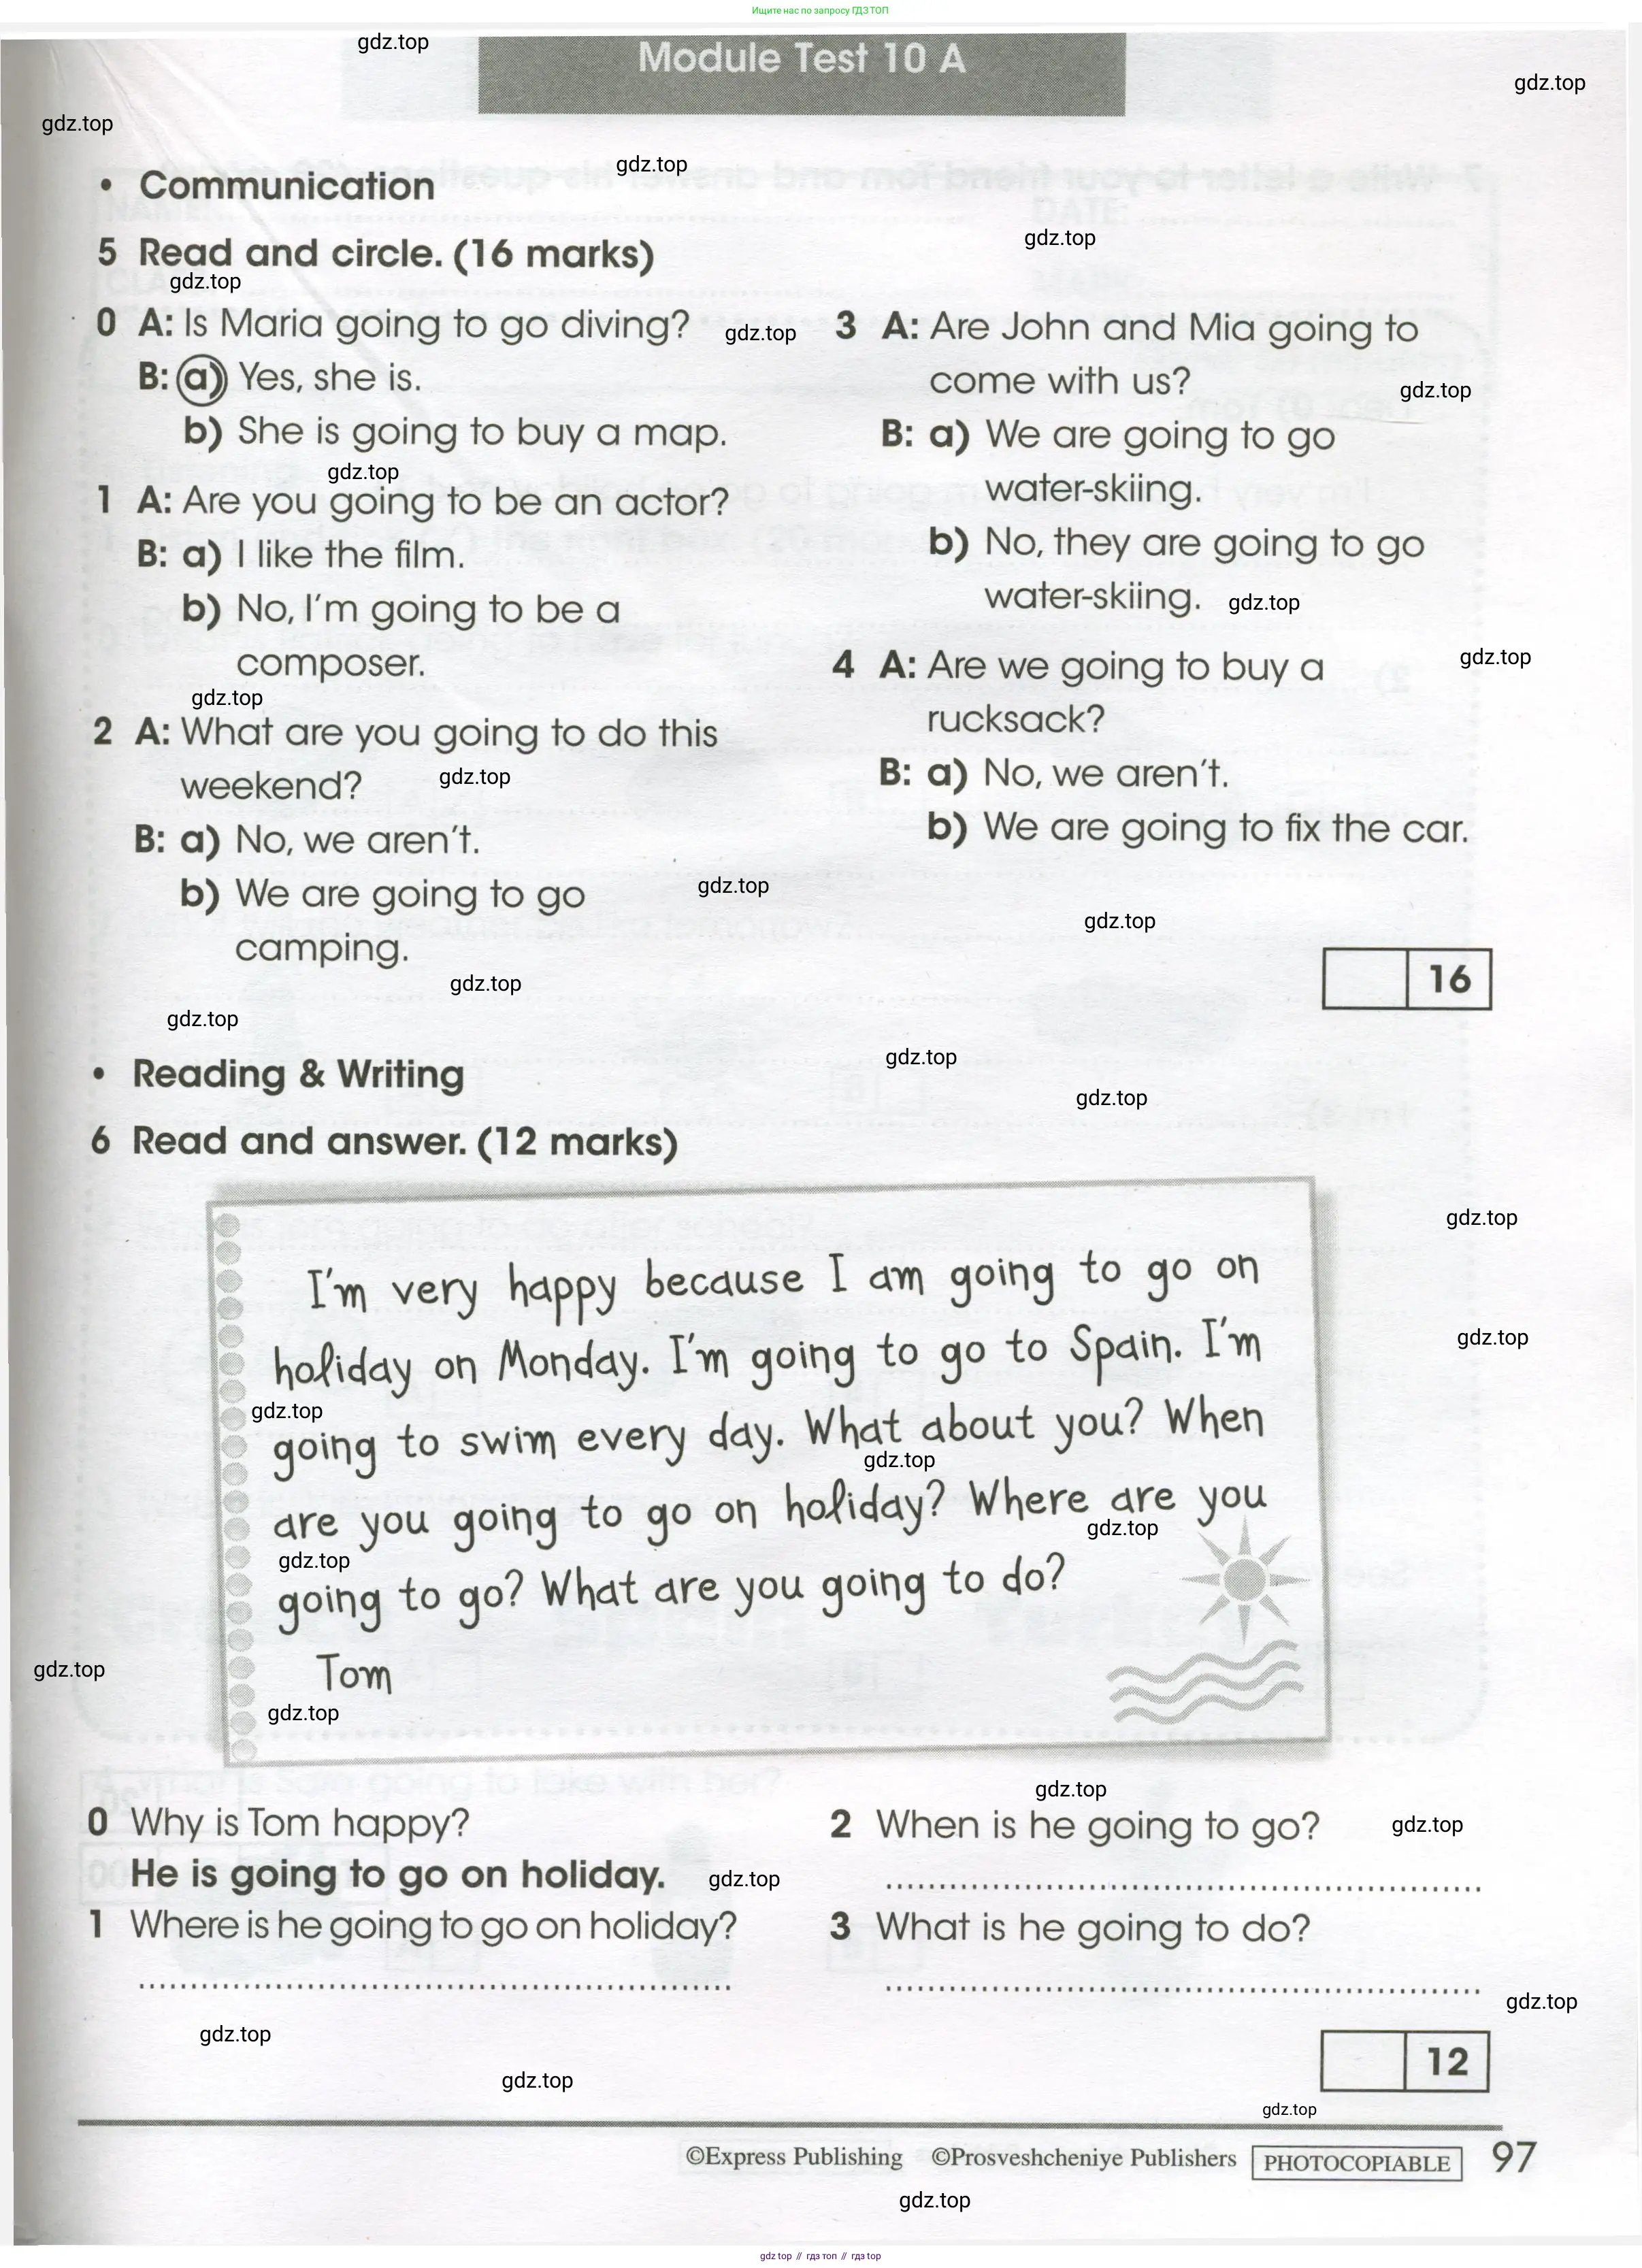 Ищите нас по запросу ГДЗ ТОП
gdz.top
Module Test 10 A
gdz.top
gdz.top
gdz.top
• Communication
gdz.top
5 Read and circle. (16 marks)
gdz.top
0 A: Is Maria going to go diving?
gdz.top
B: a) Yes, she is.
b) She is going to buy a map.
gdz.top
1 A: Are you going to be an actor?
B: a) I like the film.
b) No, I'm going to be a
composer.
gdz.top
2 A: What are you going to do this
weekend?
gdz.top
B: a) No, we aren't.
b) We are going to go
camping.
gdz.top
gdz.top
gdz.top
3 A: Are John and Mia going to
come with us?
gdz.top
B: a) We are going to go
water-skiing.
b) No, they are going to go
water-skiing.
gdz.top
4 A: Are we going to buy a
gdz.top
rucksack?
B: a) No, we aren't.
b) We are going to fix the car.
gdz.top
16
• Reading & Writing
gdz.top
gdz.top
6 Read and answer. (12 marks)
gdz.top
I'm very happy because I am going to go on
holiday on Monday. I'm going to go to Spain. I'm
gdz.top
gdz.top
going to swim every day. What about you? When
gdz.top
are you going to go on holiday? Where are you
gdz.top
gdz.top
going to go? What are you going to do?
Tom
gdz.top
gdz.top
gdz.top
0 Why is Tom happy?
He is going to go on holiday.
gdz.top
1 Where is he going to go on holiday?
2 When is he going to go?
gdz.top
3 What is he going to do?
gdz.top
gdz.top
gdz.top
12
gdz.top
©Express Publishing ©Prosveshcheniye Publishers PHOTOCOPIABLE 97
gdz.top
gdz top // гдз топ // гдз top